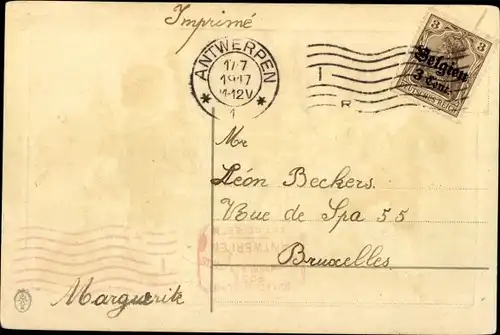 Imprimé
ANTWERPEN
17-7
1917
11-12V
1
R
3 3
Belgien
3 Cent.
DEUTSCHES REICH
Mr
Léon Beckers.
Rue de Spa 55
Bruxelles.
ANTWERPEN
Marguerite